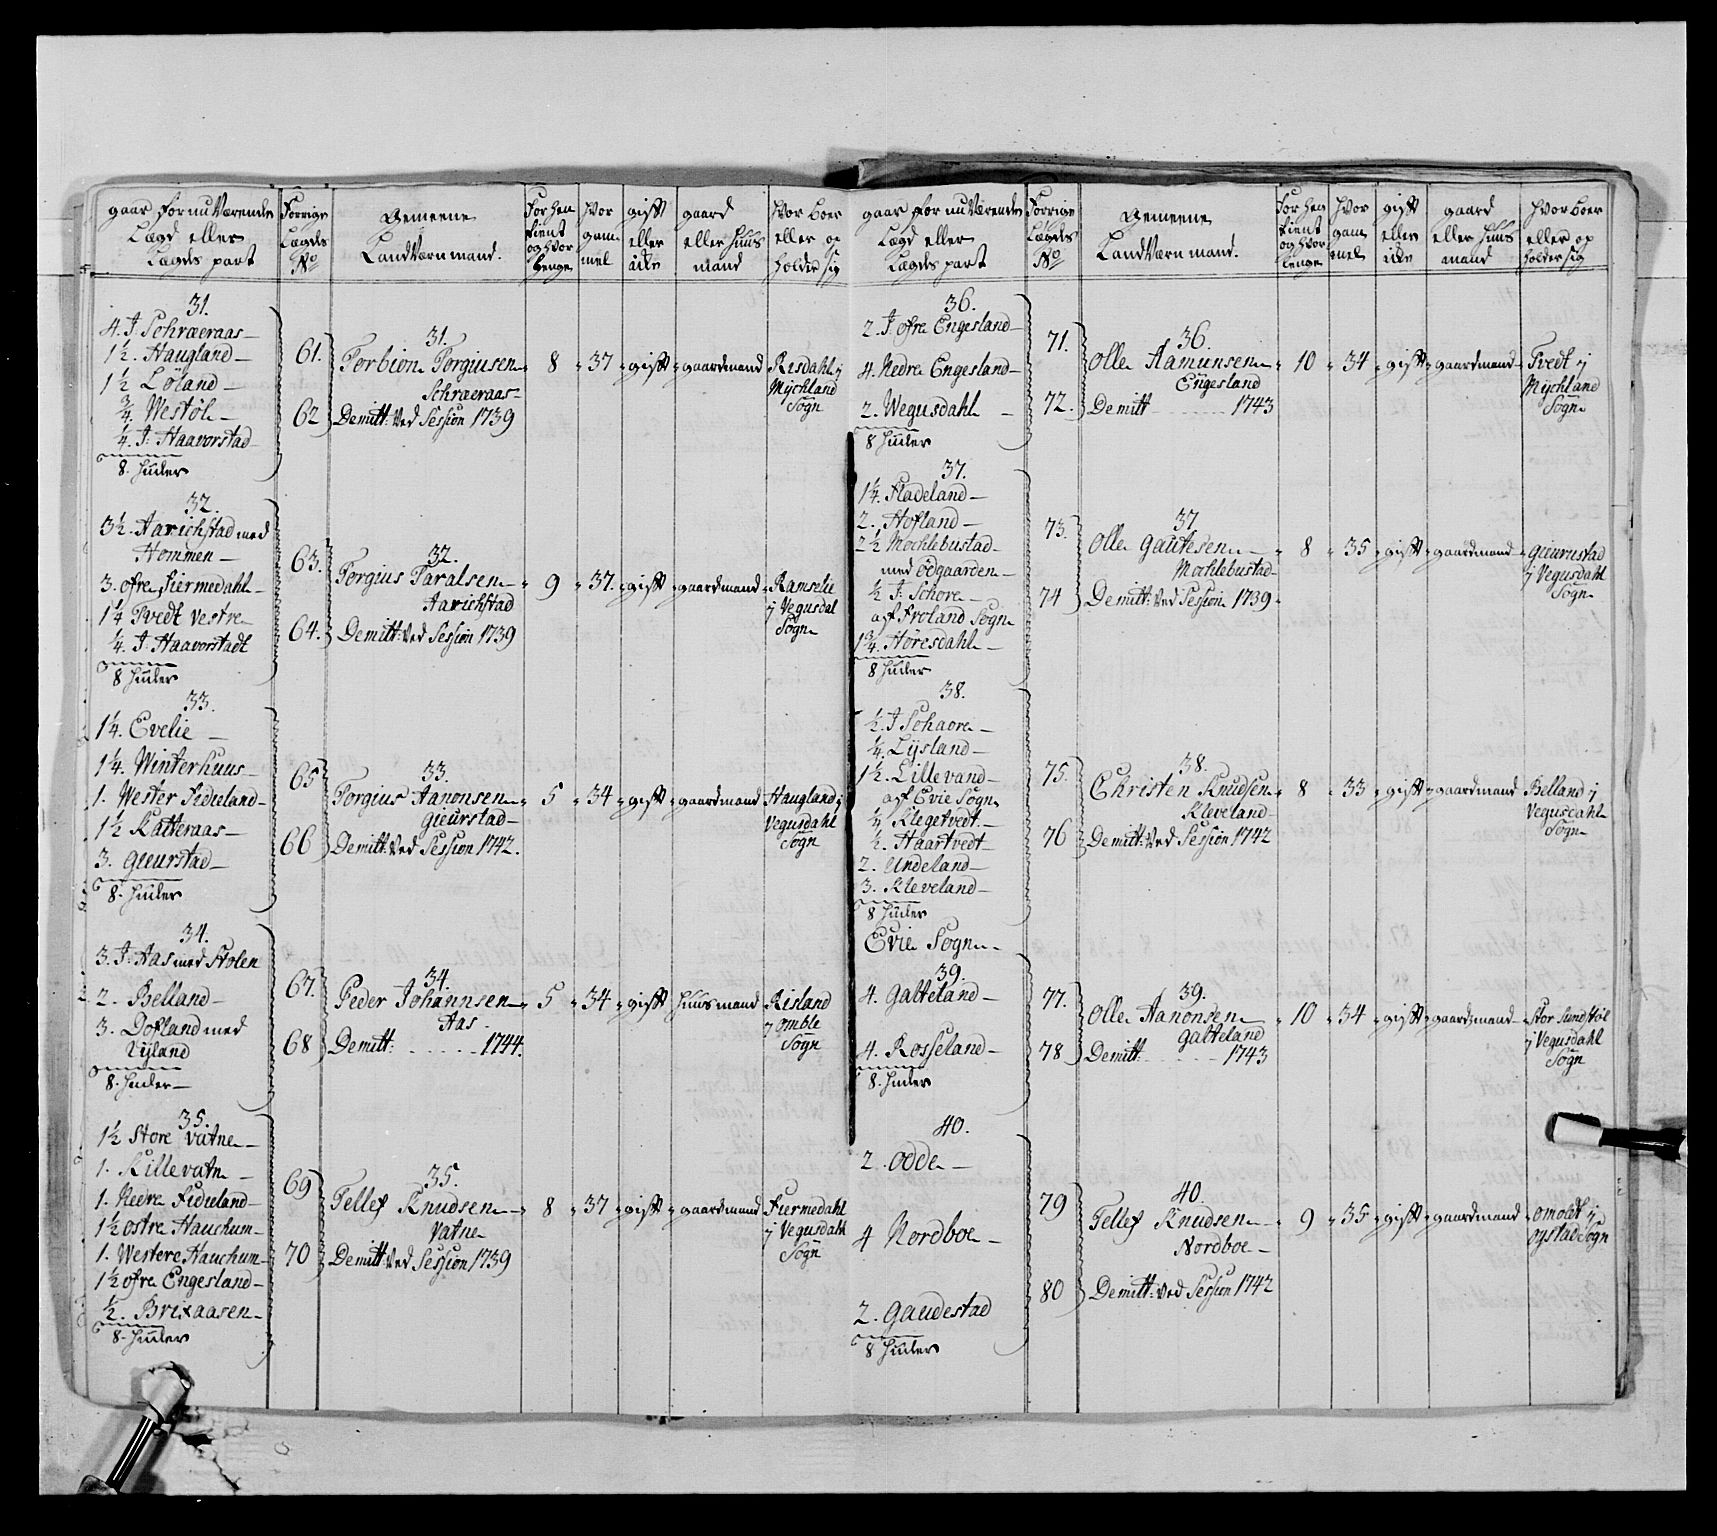 gaar for nu Værende
Lægd eller
Lægds part
Forrige
Lægds
No
Gemeene
Landværn mand.
For hen
tient
og hvor
lenge
hvor
gam-
mel
gift
eller
icke
gaard
eller huus
mand
hvor boer
eller op
holder sig
31.
4. J: Schraeraas
1½. Haugland
1½ Löland
¾ Westöl
¼. J: Haavorstad
8. huder
61.
62
31.
Torbiön Torgiusen
Schraeraas
Demitt: Ved Session 1739
8
37
gift
gaardmand
Risdahl j
Mychland
Sogn
32.
3½. Aarichstad med
Hommen
3. öfre Fiermedahl
1¼ Tvedt vestre
¼ J: Haavorstadt
8 huder
63.
64.
32.
Torgius Taralsen
Aarichstad
Demitt: Ved Session 1739
9
37.
gift
gaardmand
Ramselie
j Vegusdal
Sogn
33.
1¼. Evelie
1¼. Winterhuus
1. Wester Fidieland
1½ Katteraas
3. Gieurstad
8. huder
65
66
33.
Torgius Aanonsen
Gieurstad
Demitt: Ved Session 1742.
5
34
gift
gaardmand
Haugland j
Vegusdahl
Sogn
34.
3. J: Aas med Stolen
2. Belland
3. Dofland med
Lyland
8. huder
67.
68
34.
Peder Johannsen
Aas
Demitt: . . . . . 1744.
5
34
gift
huusmand
Risland
j Omble
Sogn
35.
1½ Store Vatne
1. Lillevatn
1. Nedre Fidieland
1½ östre Hauchum
1. Westere Hauchum
1½ öfre Engesland
½. Brixaasen
8. huder
69
70
35.
Tellef Knudsen
Vatne
Demitt: Ved Session 1739
8
37
gift
gaardmand
Fiermedahl
j Vegusdahl
Sogn
gaar for nu Værende
Lægd eller
Lægds part
Forrige
Lægds
No
Gemeene
Landværn mand.
For hen
tient
og hvor
lenge
hvor
gam-
mel
gift
eller
icke
gaard
eller huus
mand
hvor boer
eller op
holder sig
36.
2. J: öfre Engesland
4. Nedre Engesland
2. Wegusdahl
8 huder
71.
72.
36.
Olle Aamunsen
Engesland
Demitt . . . . . 1743
10
34
gift
gaardmand
Tvedt j
Mychland
Sogn
37.
1¼. Fladeland
2. Hofland
2½ Mochlebustad
med Ödgaarden
½ J: Schore
af Froland Sogn
1¾. Höresdahl
8 huder
73.
74
37
Olle Gautesen
Mochlebustad
Demitt: Ved Session 1739
8
35
gift
gaardmand
Gieurustad
j Vegusdahl
Sogn
38.
½. J Schaore
¼. Lysland
1½. Lillevand
af Evie Sogn
¼ Klegetvedt
½. Haartvedt
2. Undeland
3. Kleveland
8 huder
75.
76
38.
Christen Knudsen
Kleveland
Demitt: Ved Session 1742
8
33
gift
gaardmand
Belland j
Vegusdahl
Sogn
Evie Sogn
39.
4. Galteland
4. Rosseland
8. huder
77.
78
39.
Olle Aanonsen
Galteland
Demitt . . . . . 1743
10
34
gift
gaardmand
Stor Sundtöl
j Vegusdahl
Sogn
40.
2. Odde
4 Nordboe
2. Gaudestad
8 huder
79
80
40.
Tellef Knudsen
Nordboe
Demitt: Ved Session 1742
9
35
gift
gaardmand
Omolet j
oystad Sogn